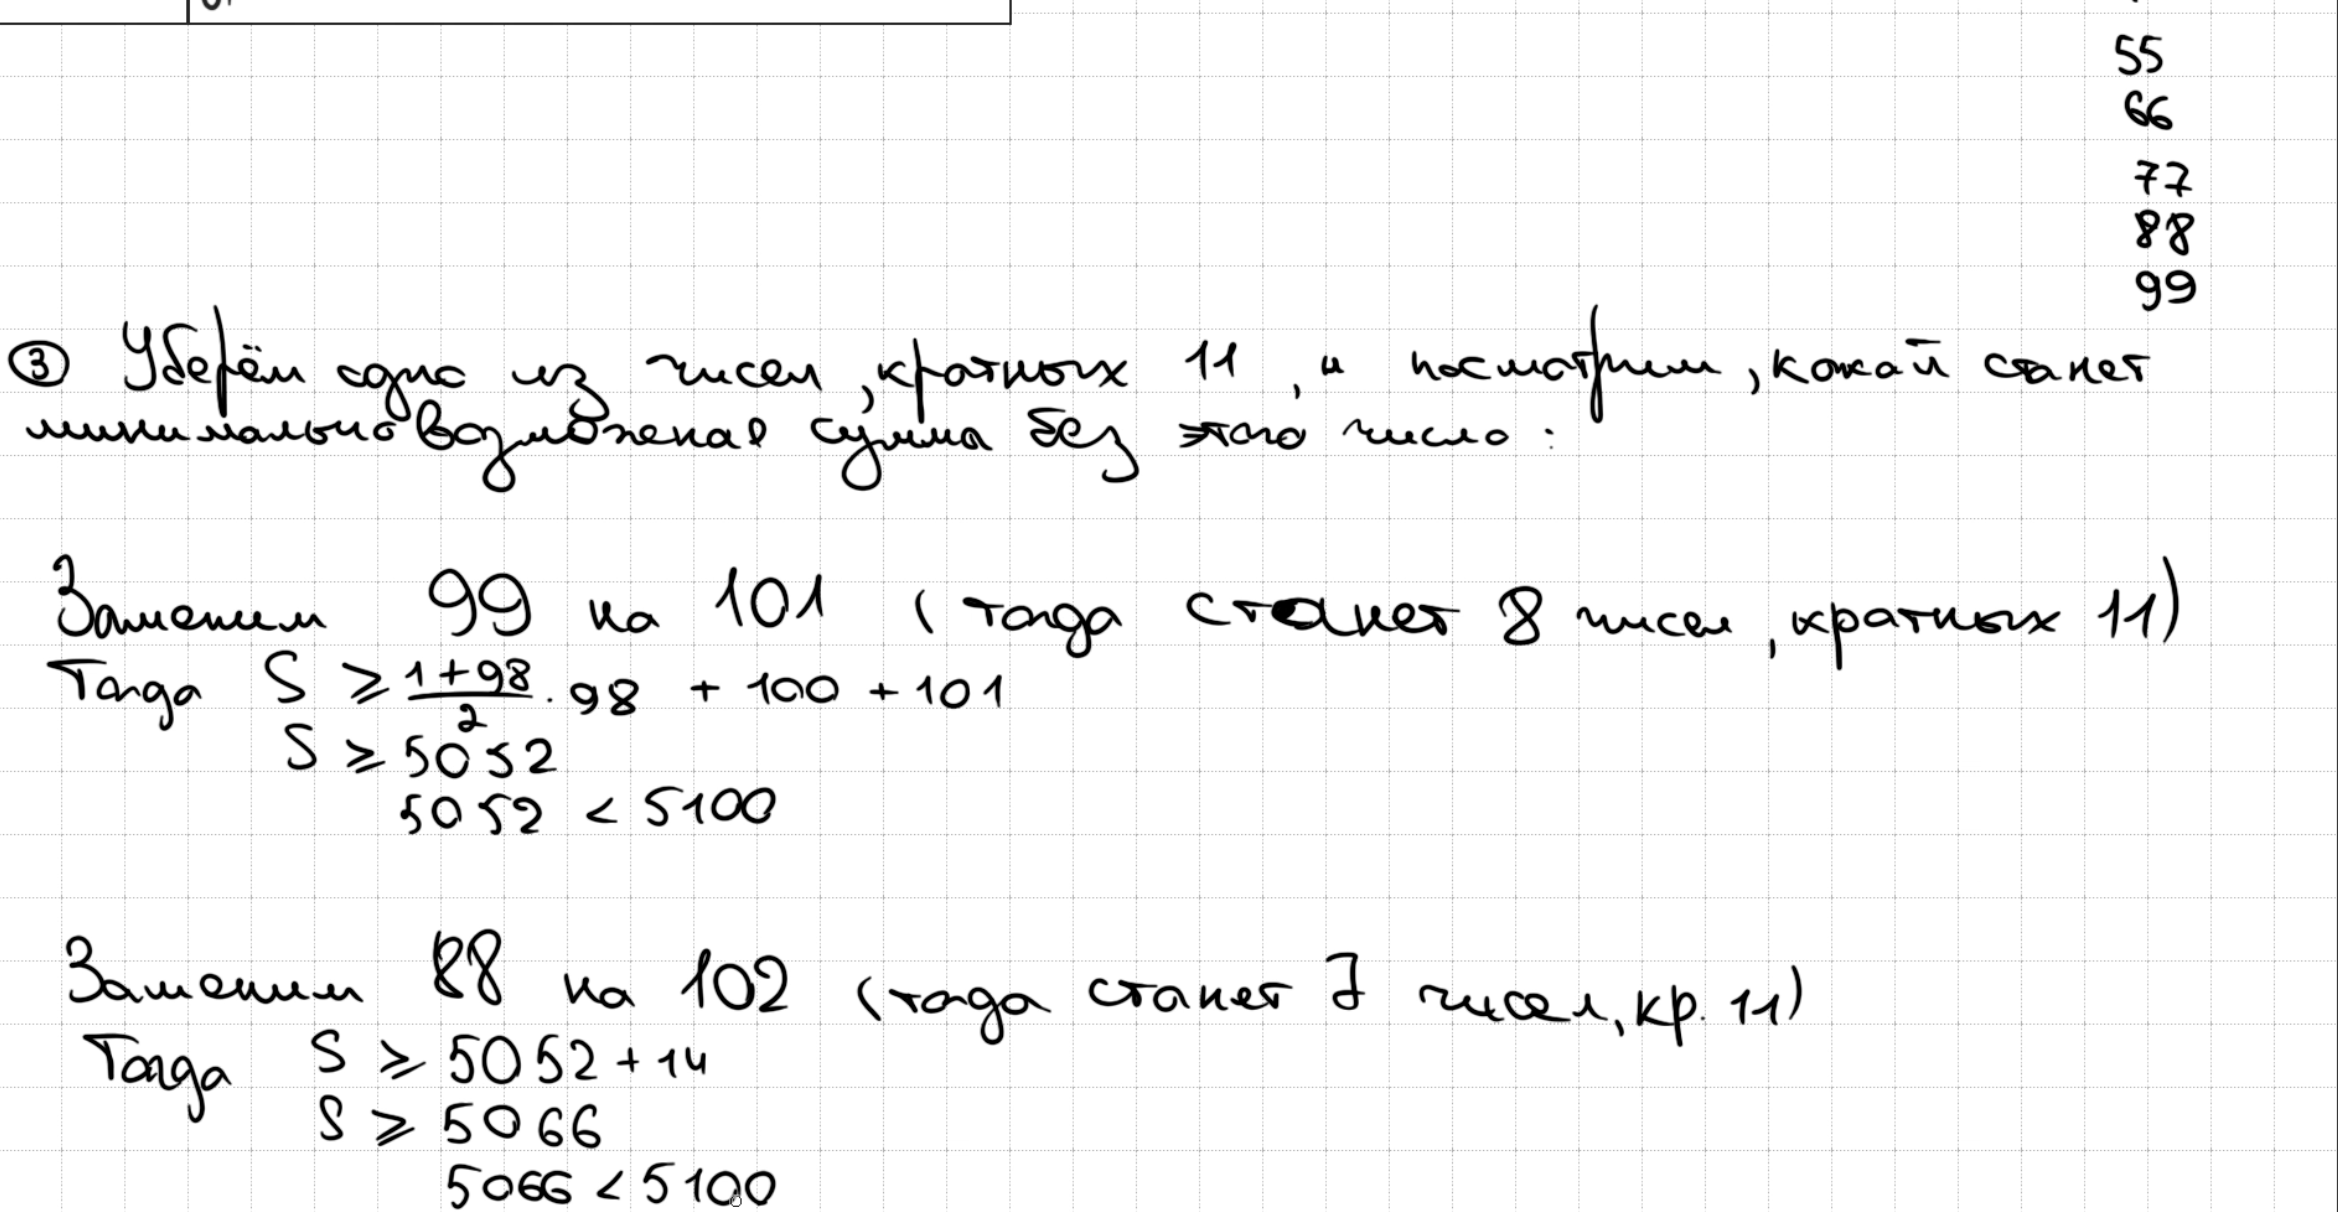 55
66
77
88
99
③ Уберём одно из чисел, кратных 11, и посмотрим, какой станет
минимально возможная сумма без этого числа:
Заменим 99 на 101 (тогда станет 8 чисел, кратных 11)
Тогда S ⩾ (1+98)/2 · 98 + 100 + 101
S ⩾ 5052
5052 < 5100
Заменим 88 на 102 (тогда станет 7 чисел, кр. 11)
Тогда S ⩾ 5052 + 14
S ⩾ 5066
5066 < 5100